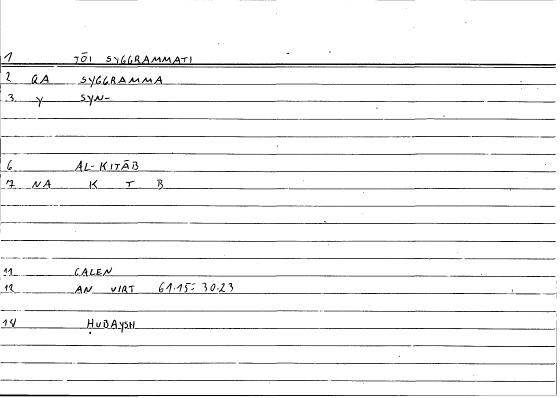 1 TŌI SYGGRAMMATI
2 QA SYGGRAMMA
3 y SYN-
6 AL-KITĀB
7 NA K T B
11 GALEN
12 AN VIRT 61.15: 30.23
14 ḤUBAYSH